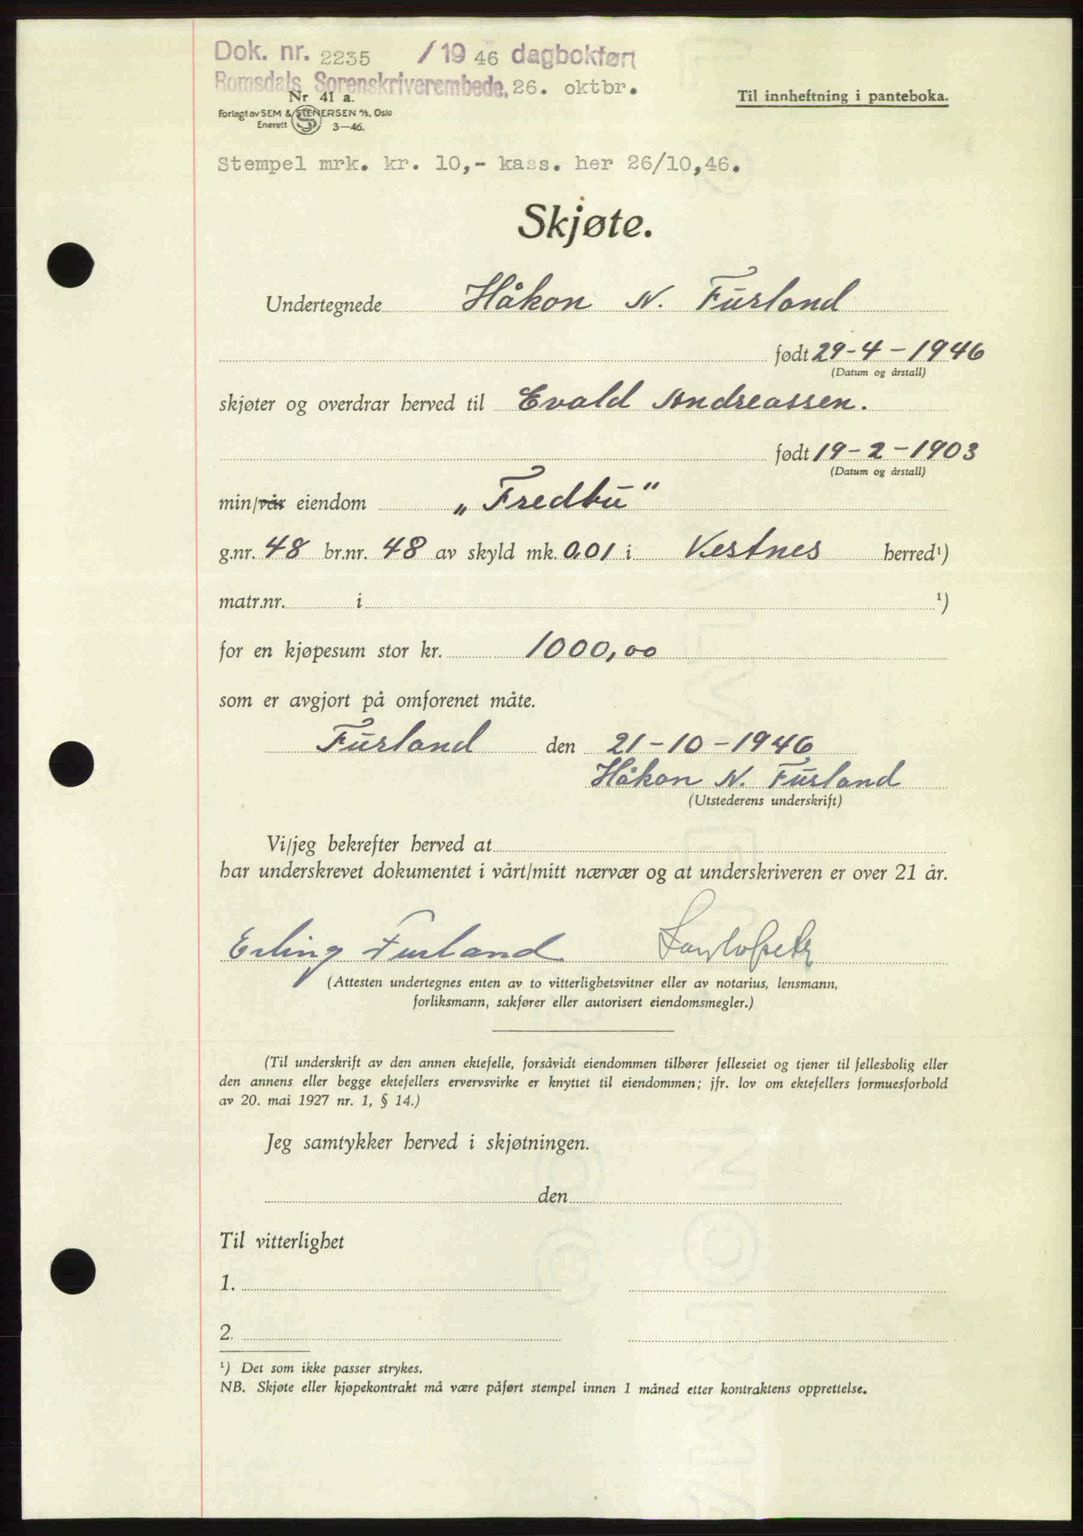 Dok. nr. 2235 /1946 dagbokført
Romsdals Sorenskriverembede, 26. oktbr.
Nr 41 a.
Forlagt av SEM & STENERSEN A/S, Oslo
Enerett S 3—46.
Til innheftning i panteboka.
Stempel mrk. kr. 10,- kass. her 26/10,46.
Skjøte.
Undertegnede Håkon N. Furland
født 29-4-1946
(Datum og årstall)
skjøter og overdrar herved til Evald Andreassen.
født 19-2-1903
(Datum og årstall)
min/vår eiendom „Fredbu"
g.nr. 48 br.nr. 48 av skyld mk. 0,01 i Vestnes herred¹)
matr.nr. i ¹)
for en kjøpesum stor kr. 1000,00
som er avgjort på omforenet måte.
Furland den 21-10-1946
Håkon N. Furland
(Utstederens underskrift)
Vi/jeg bekrefter herved at
har underskrevet dokumentet i vårt/mitt nærvær og at underskriveren er over 21 år.
Erling Furland
(Attesten undertegnes enten av to vitterlighetsvitner eller av notarius, lensmann,
forliksmann, sakfører eller autorisert eiendomsmegler.)
(Til underskrift av den annen ektefelle, forsåvidt eiendommen tilhører felleseiet og tjener til fellesbolig eller
den annens eller begge ektefellers ervervsvirke er knyttet til eiendommen; jfr. lov om ektefellers formuesforhold
av 20. mai 1927 nr. 1, § 14.)
Jeg samtykker herved i skjøtningen.
den
Til vitterlighet
1.
2.
¹) Det som ikke passer strykes.
NB. Skjøte eller kjøpekontrakt må være påført stempel innen 1 måned etter kontraktens opprettelse.